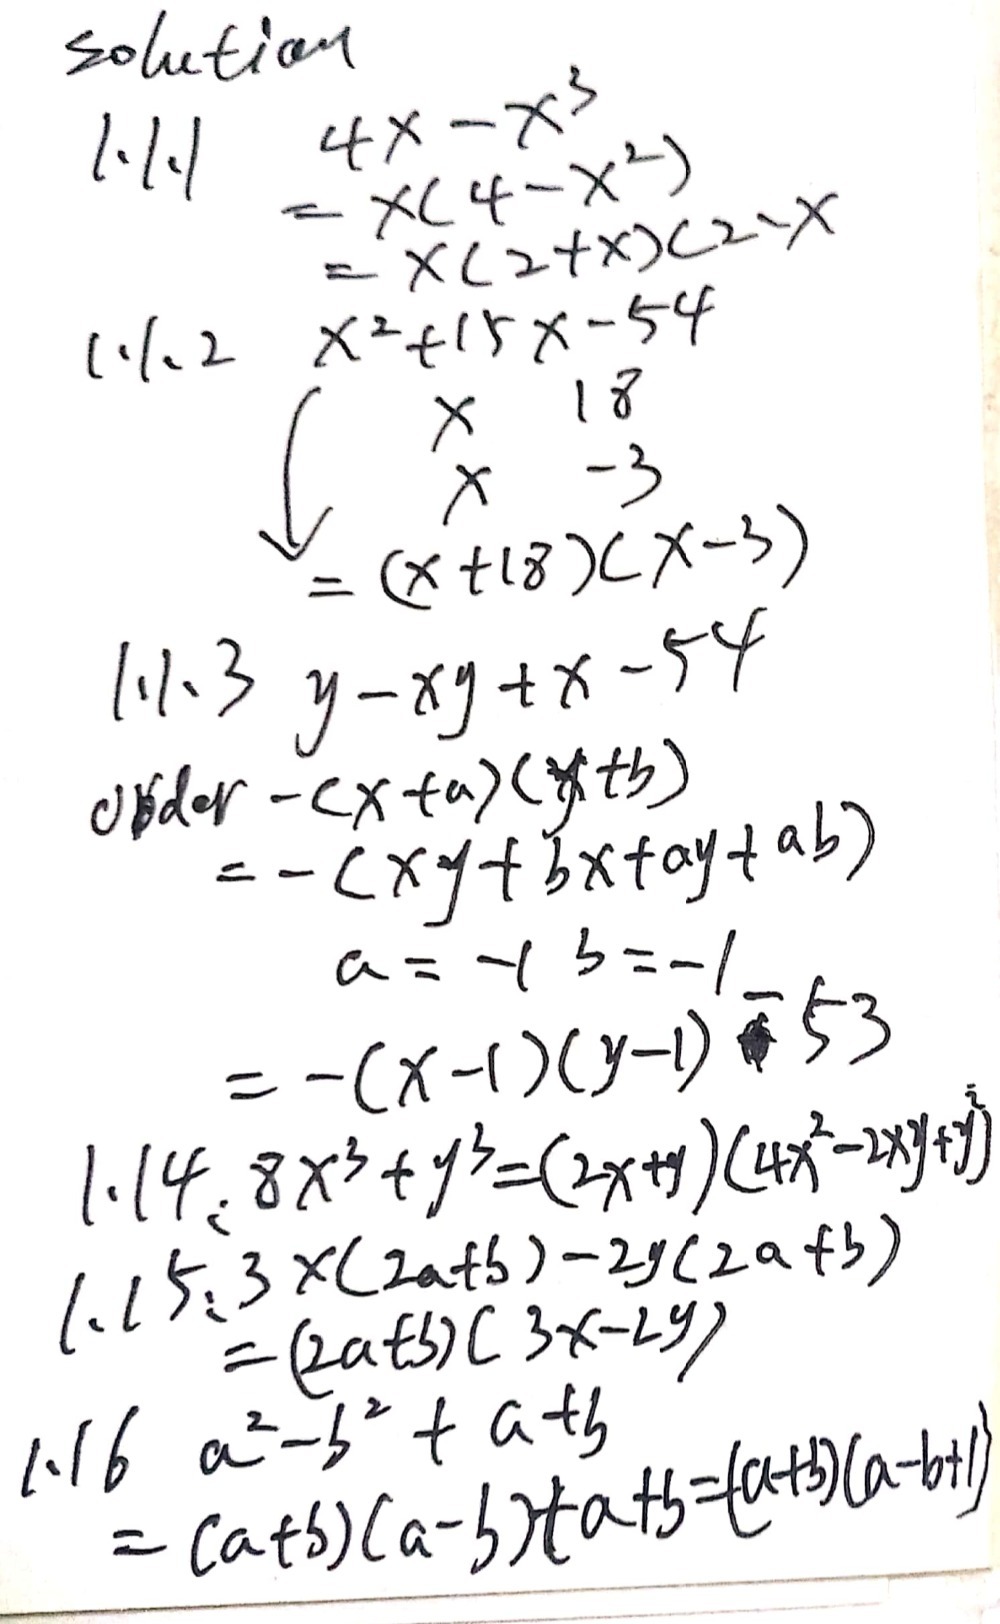 solution
1.1.1 4x - x³
= x(4 - x²)
= x(2+x)(2-x
1.1.2 x²+15x-54
x 18
x -3
= (x+18)(x-3)
1.1.3 y-xy+x-54
order -(x+a)(y+b)
= -(xy+bx+ay+ab)
a = -1 b = -1
= -(x-1)(y-1) - 53
1.14: 8x³+y³=(2x+y)(4x²-2xy+y²)
1.15: 3x(2a+b)-2y(2a+b)
= (2a+b)(3x-2y)
1.16 a²-b²+a+b
= (a+b)(a-b)+a+b=(a+b)(a-b+1)